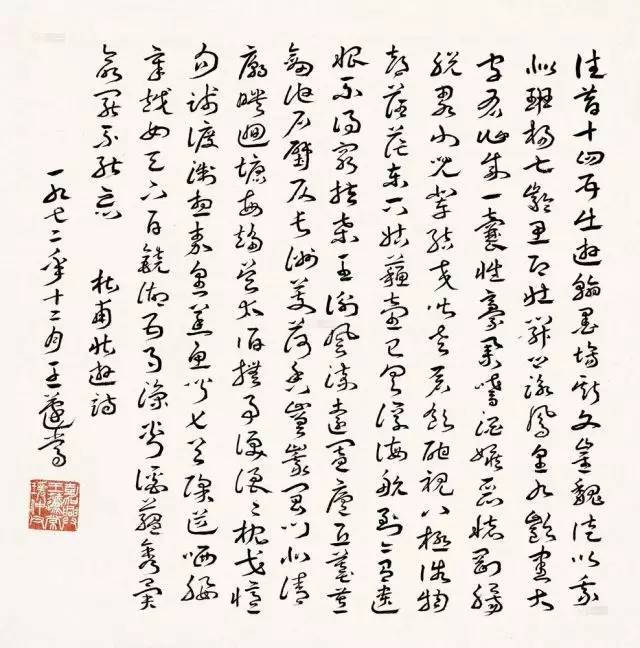 往昔十四五出遊翰墨場斯文崔魏徒以我
似班揚七齡思即壯開口詠鳳皇九齡書大
字有作成一囊性豪業嗜酒嫉惡懷剛腸
脫畧小時輩結交皆老蒼飲酣視八極俗物
都茫茫東下姑蘇臺已具浮海航到今有遺
恨不得窮扶桑王謝風流遠闔廬丘墓荒
劍池石壁仄長洲芰荷香嵯峨閶門北清
廟映迴塘每趨吳太伯撫事淚浪〻枕戈憶
勾踐渡浙想秦皇蒸魚聞匕首除道哂腰
章越女天下白鏡湖五月涼剡溪蘊秀異
欲罷不能忘 杜甫壯遊詩
一九七二年十二月王蘧常